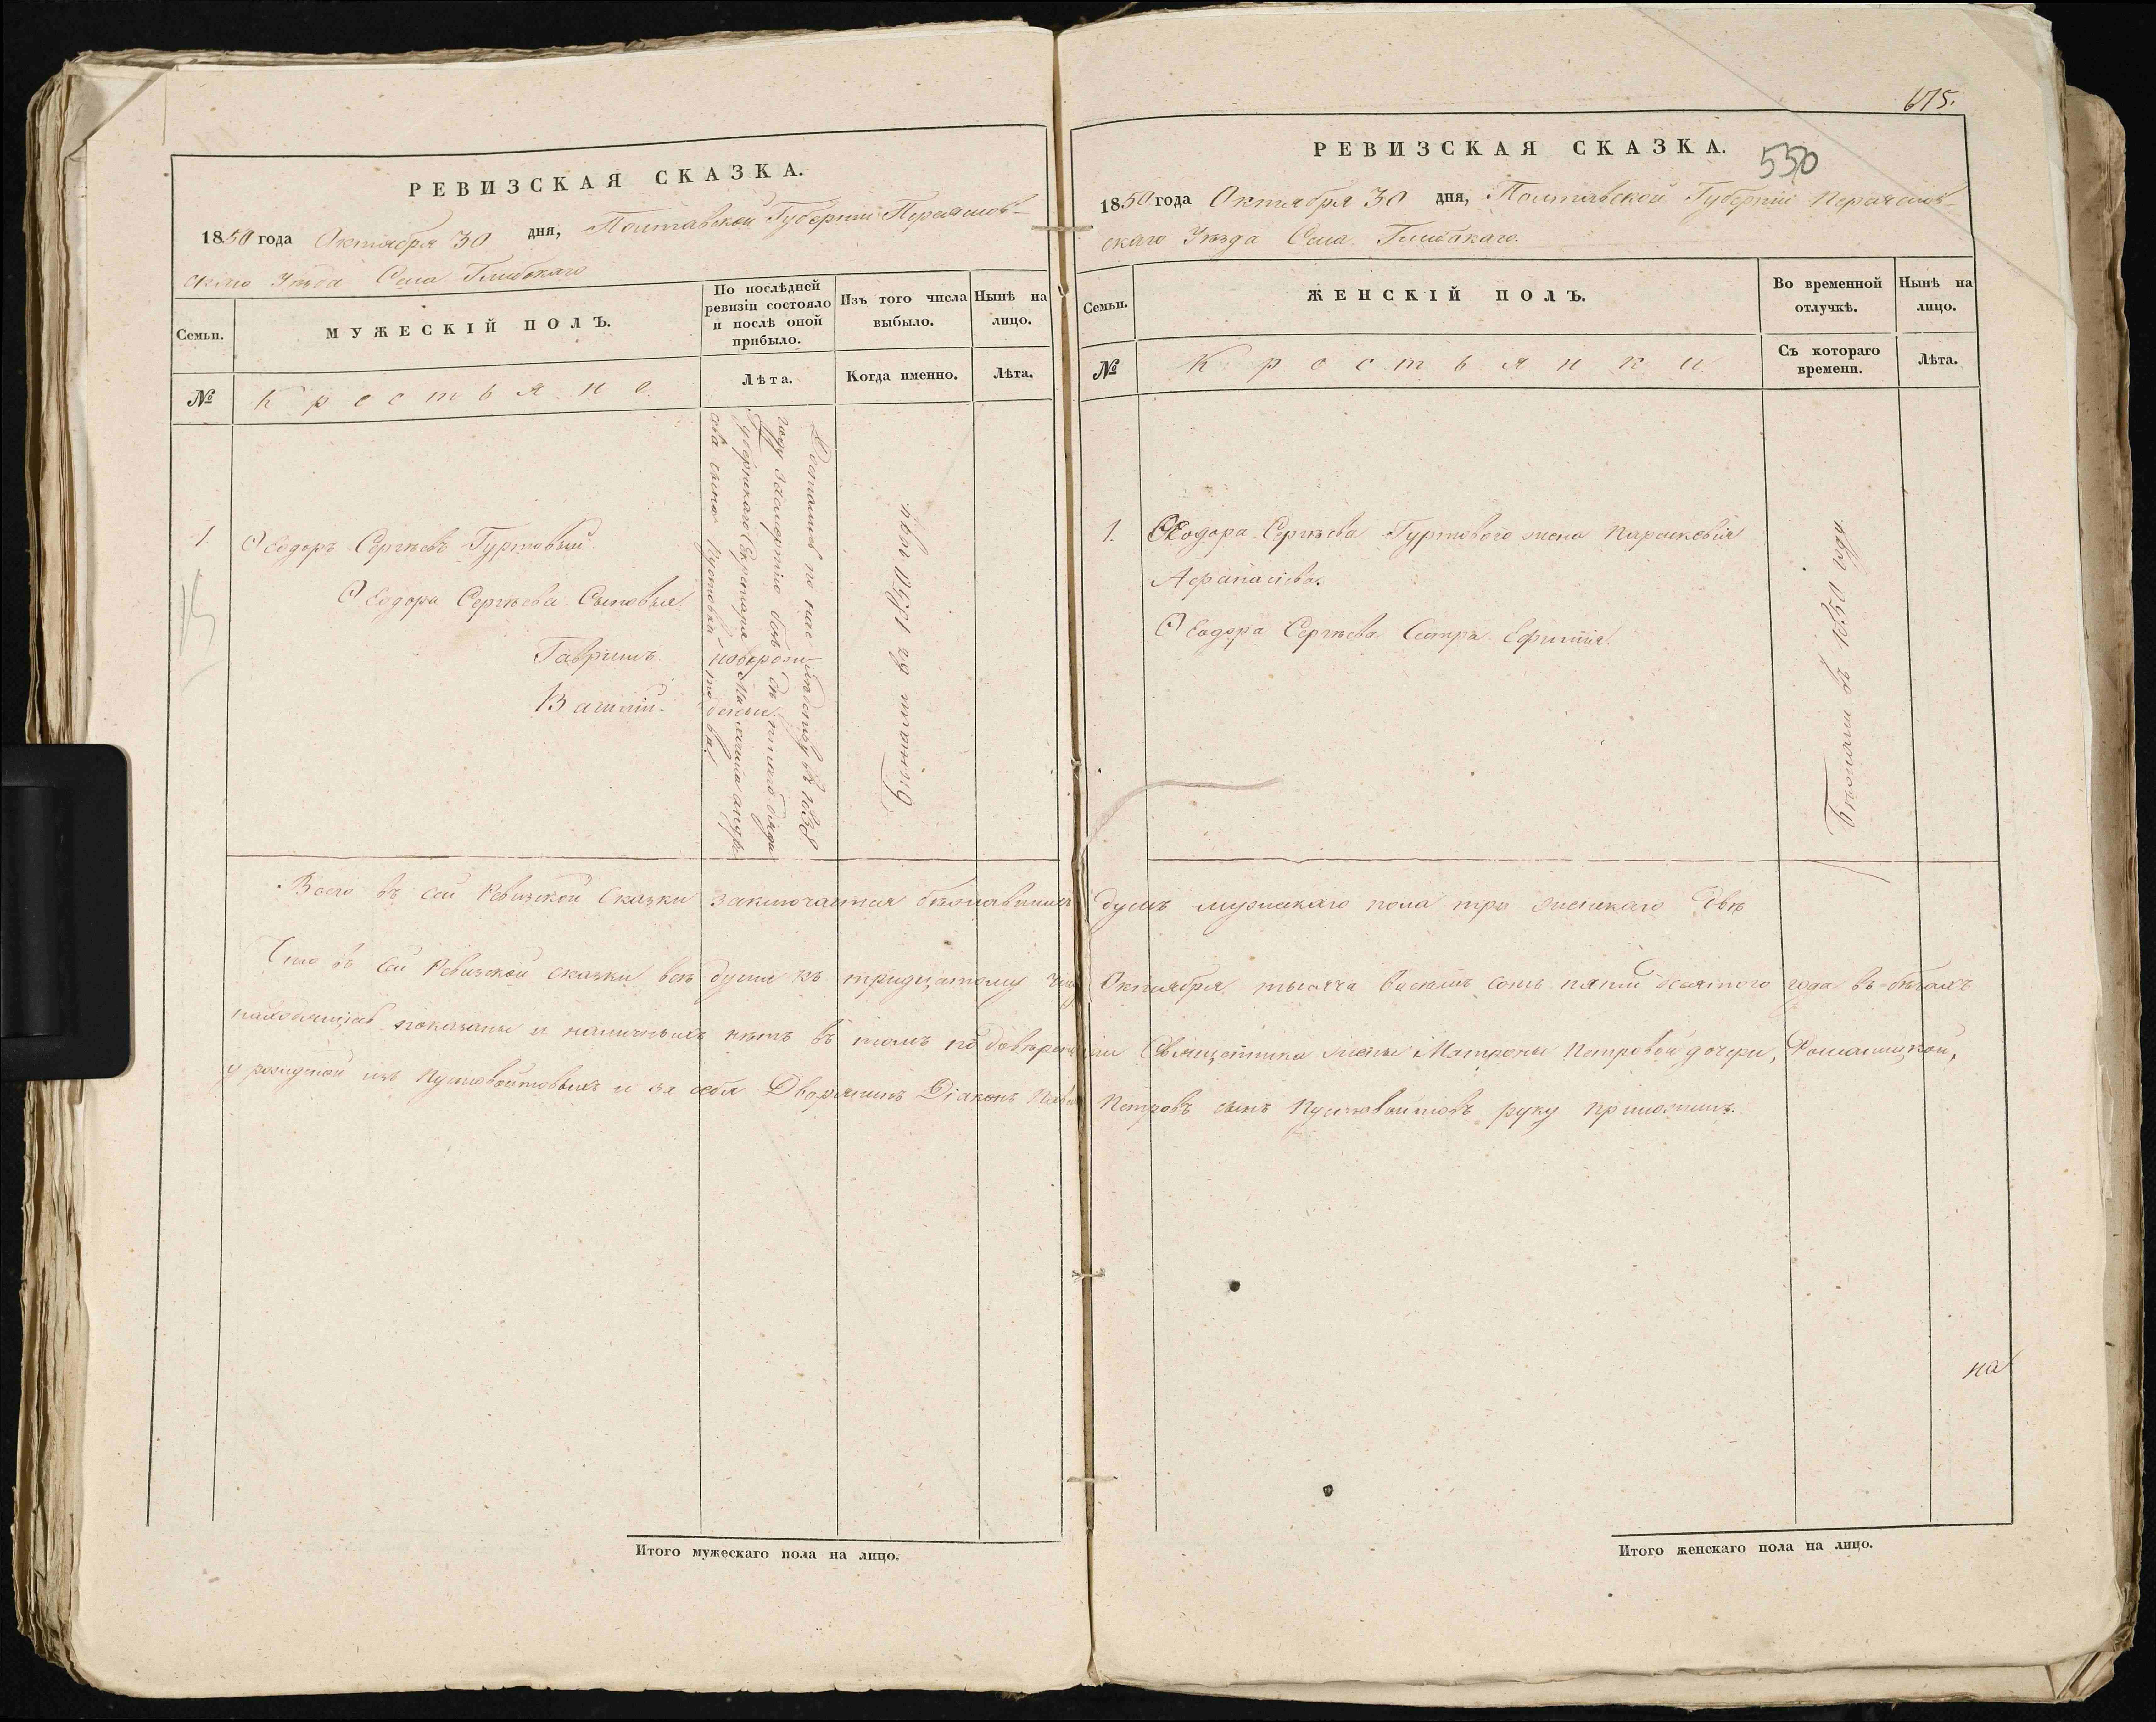 РЕВИЗСКАЯ СКАЗКА.
1850 года Октября 30 дня, Полтавской Губернии Переяслов-
скаго Уѣзда Села Глибокаго
Семьи.
МУЖЕСКІЙ ПОЛЪ.
По послѣдней ревизіи состояло и послѣ оной прибыло.
Изъ того числа выбыло.
Нынѣ на лицо.
№
Крестьяне.
Лѣта.
Когда именно.
Лѣта.
1. Ѳеодоръ Сергѣевъ Гуртовый
Ѳеодора Сергѣева Сыновья.
Гавриилъ.
Василій.
Достались по наслѣдству въ 1838
году
Губернскаго Секретаря
Бѣжали въ 1850 году
Всего въ сей Ревизской Сказки заключается бѣжавшихъ
Что въ сей Ревизской сказки всѣ души къ тридцатому числу
находящіясь показаны и наличныхъ нѣтъ въ томъ по довѣренности
урожденной изъ Пустовойтовыхъ и за себя Дворянинъ Діаконъ
Итого мужескаго пола на лицо.
675.
550
РЕВИЗСКАЯ СКАЗКА.
1850 года Октября 30 дня, Полтавской Губерніи Переяслов-
скаго Уѣзда Села Глибокаго.
Семьи.
ЖЕНСКІЙ ПОЛЪ.
Во временной отлучкѣ.
Нынѣ на лицо.
№
Крестьянки.
Съ котораго времени.
Лѣта.
1. Ѳеодора Сергѣева Гуртового жена Параскевія
Афанасіева.
Ѳеодора Сергѣева Сестра Ефимія.
Бѣжали въ 1850 году.
душъ мужескаго пола три женскаго двѣ
Октября тысяча восемь сотъ пятидесятого года въ бѣгахъ
Священника жены Матроны Петровой дочери, Ромашицкой,
Петровъ сынъ Пустовойтовъ руку приложилъ.
на
Итого женскаго пола на лицо.